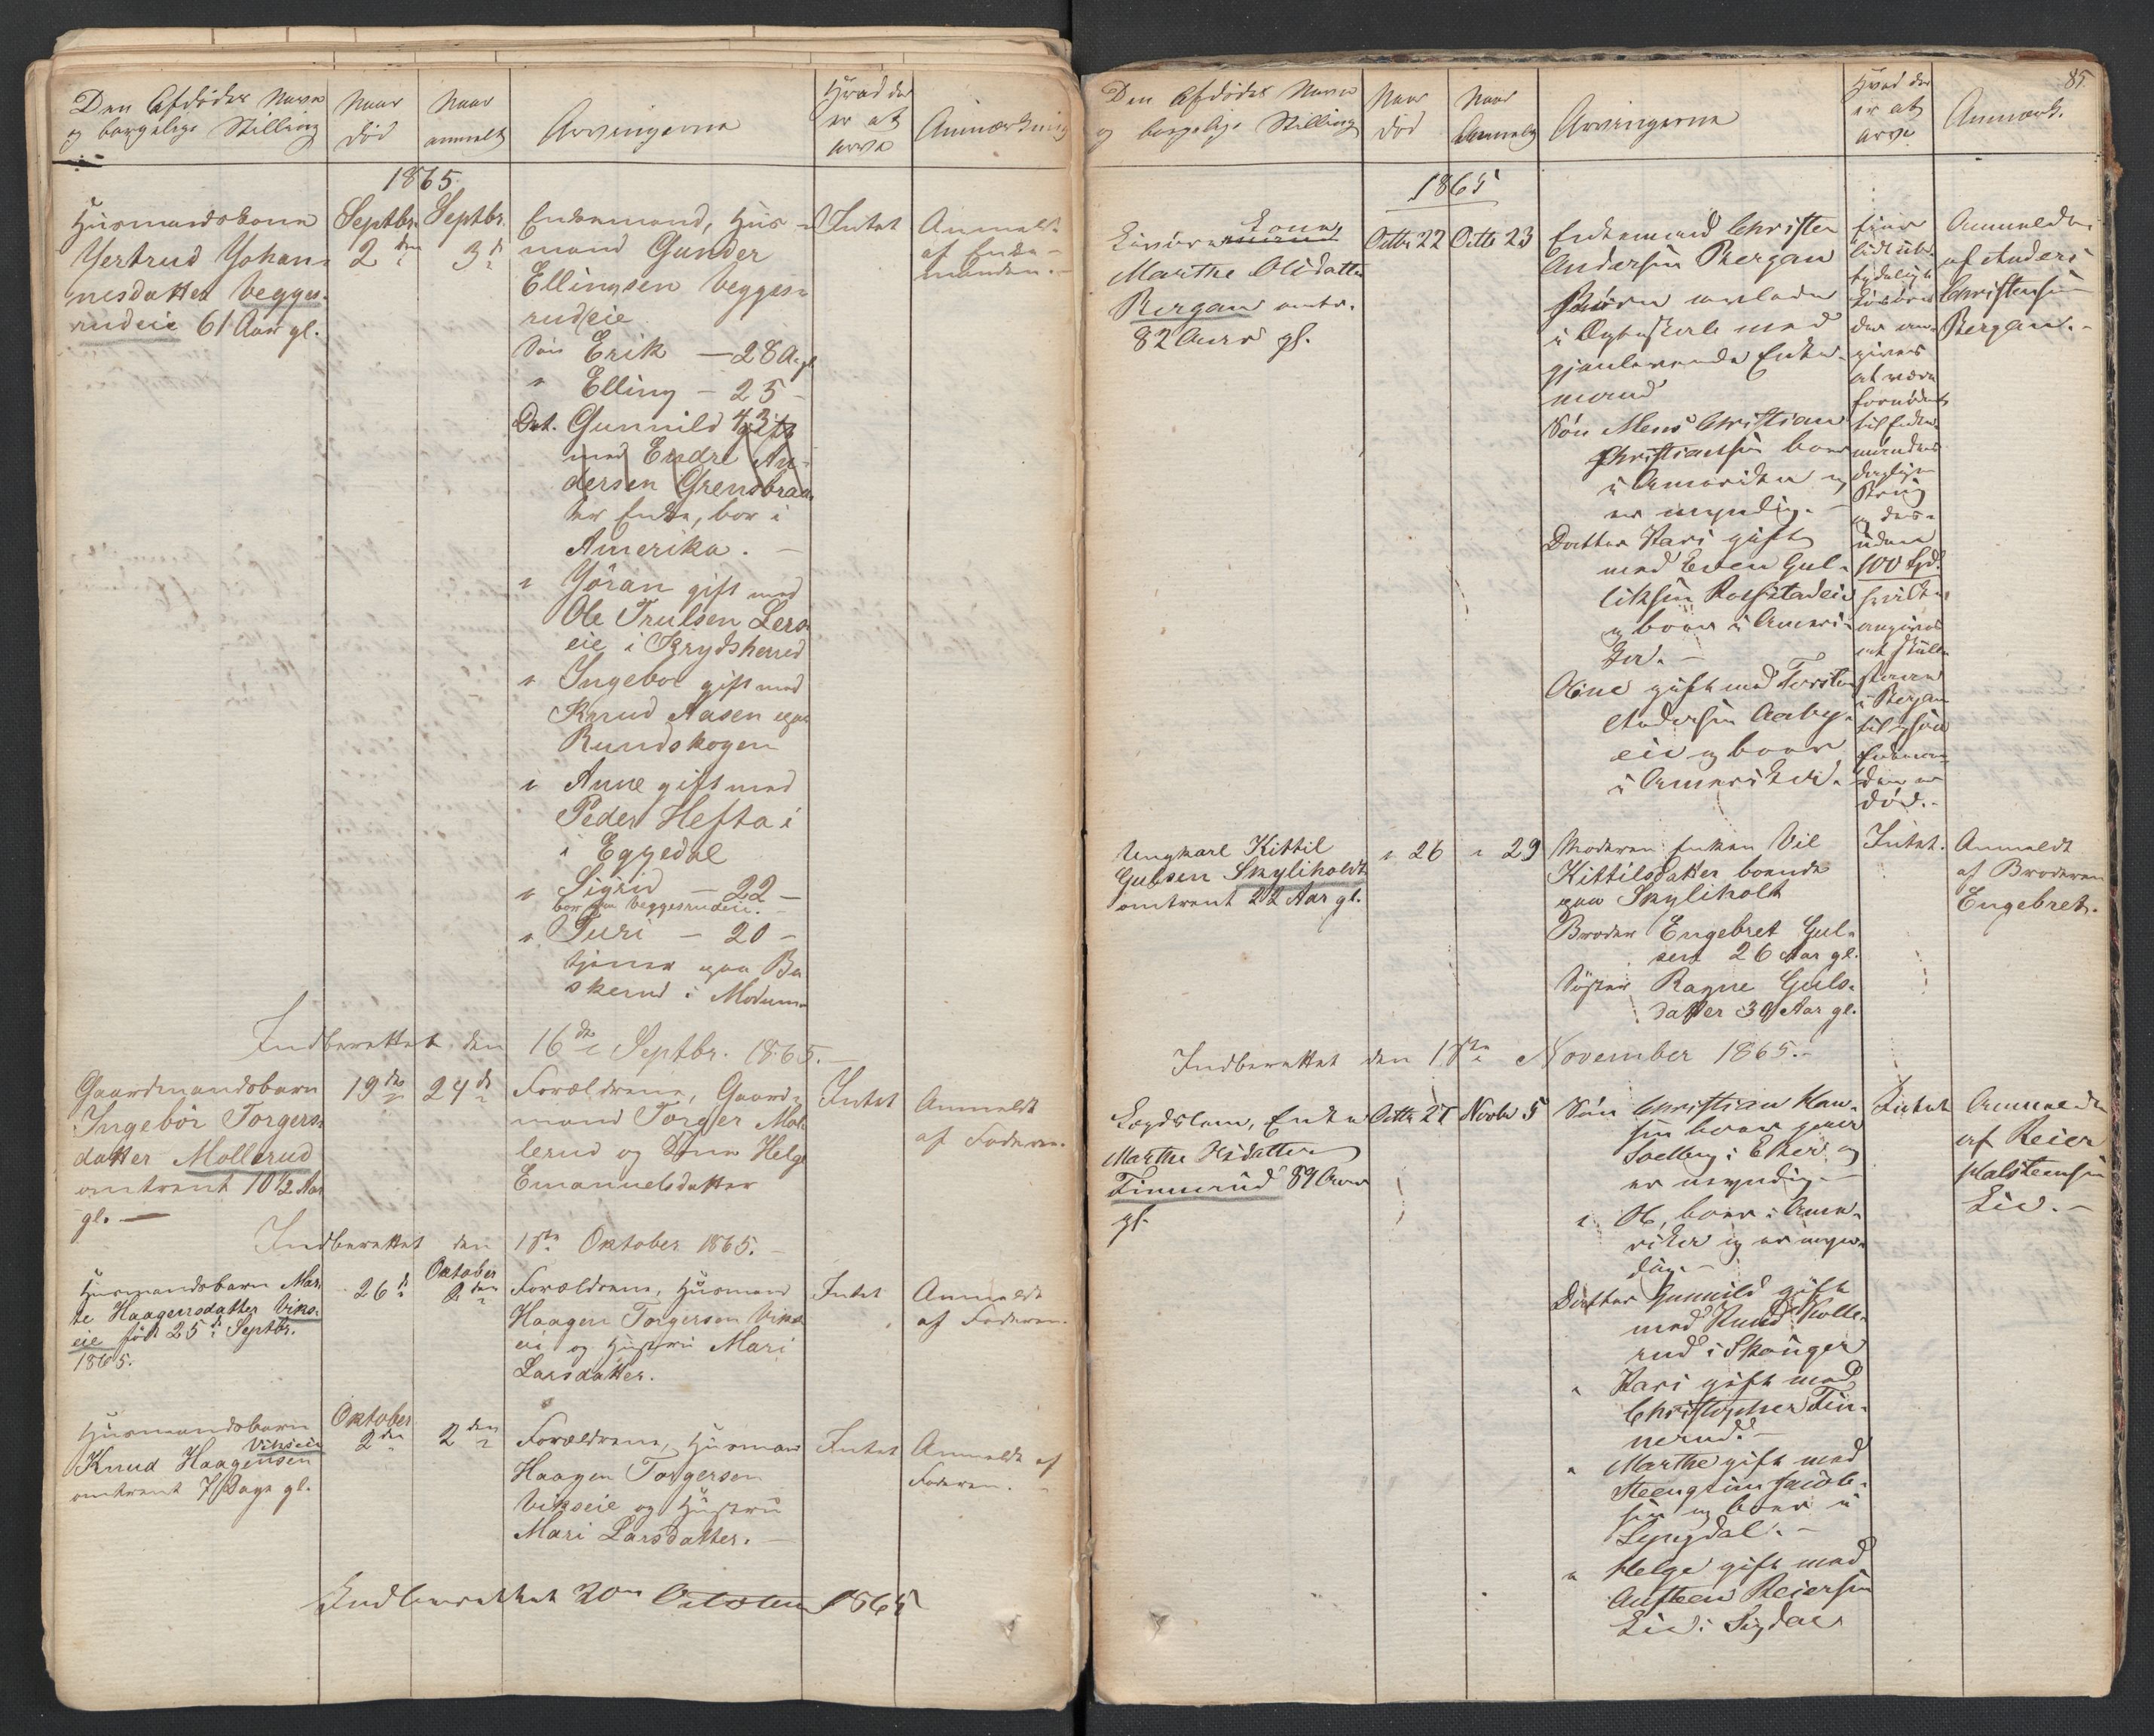 Den Afdødes Navn
og borgelige Stilling
Naar
død
Naar
anmelt
Arvingerne
Hvad der
er at
arve
Anmærkning
1865.
Husmandskone
Gertrud Johan-
nesdatter Vegges-
rudeie 61 Aar gl.
Septbr.
2den
Septbr.
3d
Enkemand, Hus-
mand Gunder
Ellingsen Vegges-
rudeie
Søn Erik — 28 A. gl.
" Elling — 25 -
Dat. Gunnild 43 gift
med Endre An-
dersen Grensbraa-
ter Enke, bor i
Amerika. —
" Göran gift med
Ole Trulsen Lers-
eie i Krydsherred
" Ingebor gift med
Knud Aasen paa
Rundskogen
" Anne gift med
Peder Hefta i
i Eggedal
" Sigrid — 22 —
bor paa Veggesrudeie. -
" Turi — 20 —
tjener paa Bu
skerud i Modum
Intet
Anmeldt
af Enke-
manden. -
Indberettet den 16de Septbr. 1865. —
Gaardmandsbarn
Ingebör Torgers-
datter Mollerud
omtrent 10½ Aar
gl. —
19de
24d
Forældrene, Gaard-
mand Torger Mol-
lerud og Kone Helge
Emanuelsdatter
Intet
Anmeldt
af Faderen.
Indberettet den 1ste Oktober 1865. —
Husmandsbarn Mar-
te Haagensdatter Viks-
eie født 25d Septbr.
1865.
26d
Oktober
2den
Forældrene, Husmand
Haagen Torgersen Viks-
eie og Hustru Mari
Larsdatter.
Intet
Anmeldt
af Faderen.
Husmandsbarn
Vikseie
Knud Haagensen
omtrent 7 Dage gl.
Oktober
2den
2den
Forældrene, Husmand
Haagen Torgersen
Vikseie og Hustru
Mari Larsdatter. —
Intet
Anmeldt af
Faderen. -
Indberettet 20de October 1865
85.
Den Afdødes Navn
og borgelige Stilling
Naar
død
Naar
Anmeldt
Arvingerne
Hvad der
er at
arve
Anmærk.
1865
Kone
Marthe Olsdatter
Bergan omtr.
82 Aar gl.
Octbr 22
Octb 23
Enkemand Christen
Andersen Bergan
Børn avlede
i Ægteskab med
gjenlevende Enke-
mand
Søn Mens Christian
Christiansen boer
i Amerika og
er myndig. —
Datter Kari gift
med Even Gul-
liksen Rolfstadeie
og boer i Ameri-
ka. —
Oline gift med Torsten
Andersen Aaby-
eie og boer
i Amerika.
Lidt ube-
tydeligt
Løsøre
der an-
gives
at være
fornødent
til Enke-
mandens
daglige
Brug
og des-
uden
100 Spd.
angives
at skulle
i Bergan
død. -
Anmeldt
af Anders
Christensen
Bergan. -
Ungkarl Kittil
Gulsen Skyliholdt
omtrent 22 Aar gl.
" 26
" 29
Moderen Enken Vil
Kittilsdatter boende
paa Skyliholt
Broder Engebret Gul-
sen 26 Aar gl.
Søster Ragne Guls-
datter 30 Aar gl.
Intet.
Anmeldt
af Broderen
Engebret.
Indberettet den 1ste November 1865. -
Lægdslem, Enke
Marthe Olsdatter
Finnerud 89 Aar
gl.
Octbr 27
Novbr 5
Søn Christian Han-
sen boer paa
Solberg i Eker og
er myndig. —
" Ole, boer i Ame-
rika og er myn-
dig. —
Datter Gunnild gift
med Knud Kolle-
rud i Skouger
" Kari gift med
Christopher Fin-
nerud. —
" Marthe gift med
Steengrim Jacob-
sen og boer i
Lyngdal. —
" Helge gift med
Austen Reiersen
Lie i Sigdal
Intet
Anmeldt
af Reier
Halstensen
Lie. —